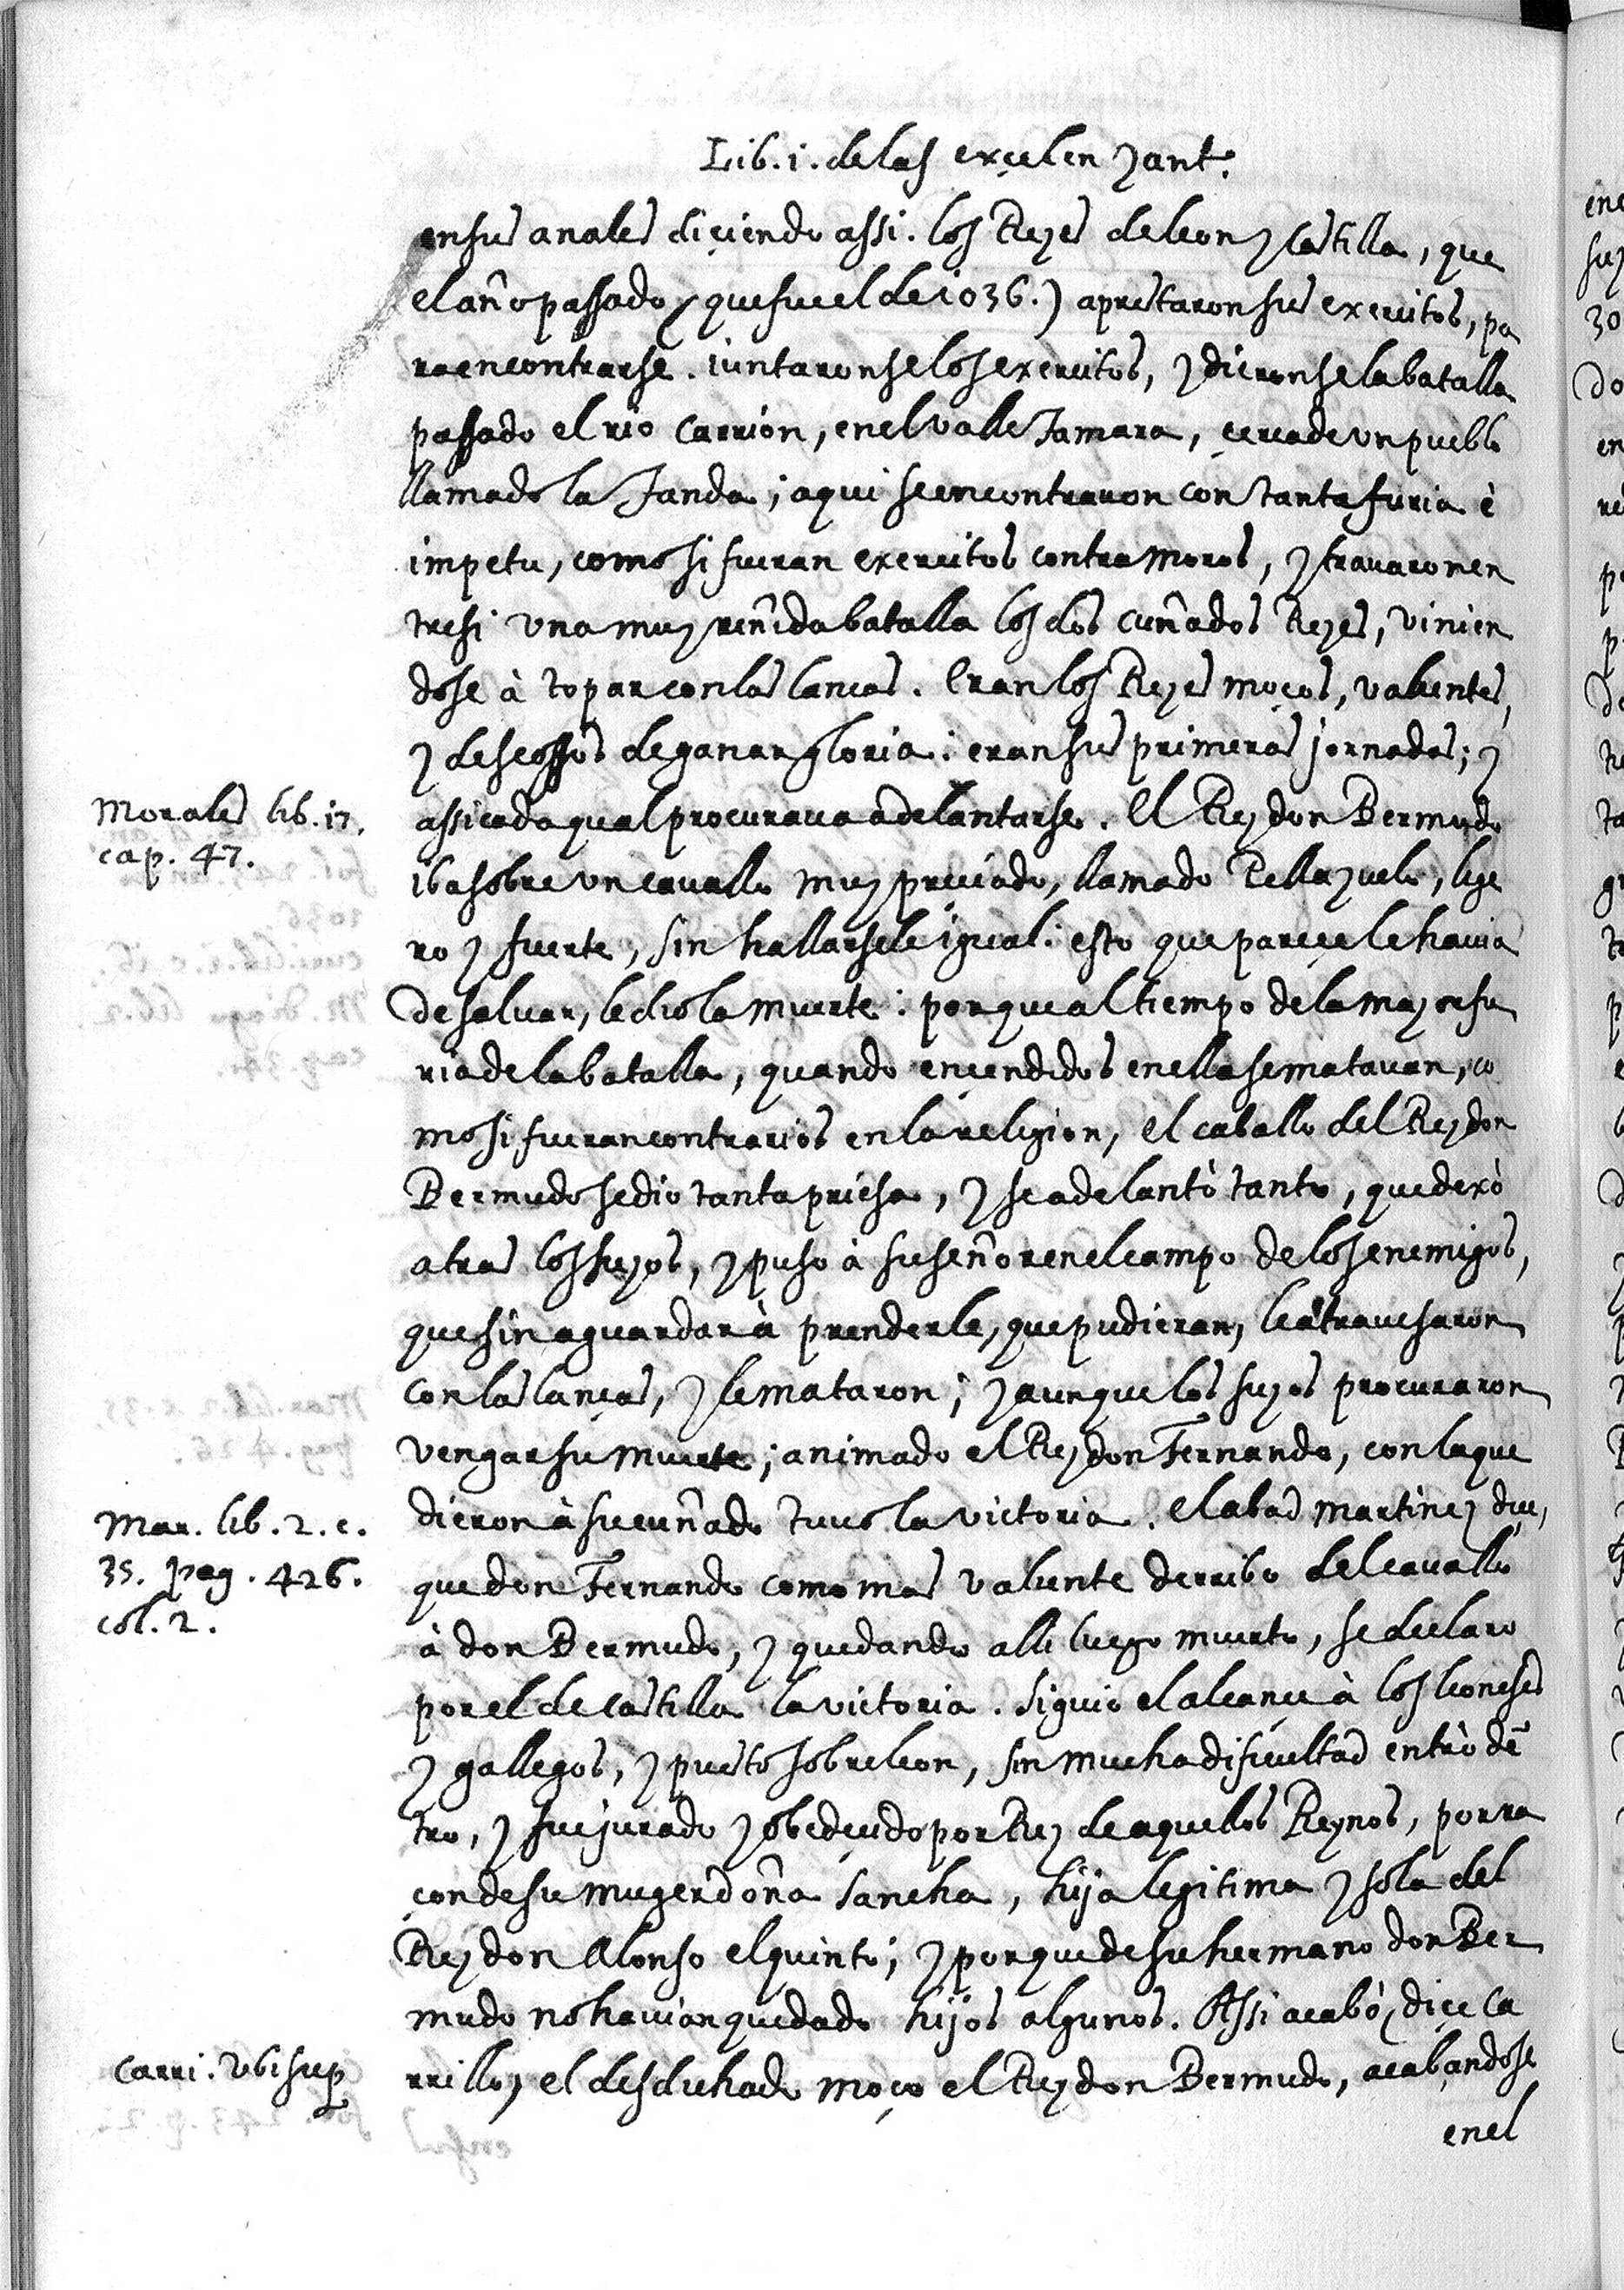 Lib. 1. de las excelen y ant.
en sus anales diçiendo assi. los Reyes de leon y castilla, que
el año passado (que fue el de 1036.) aprestaron sus exercitos, pa
ra encontrarse. iuntaronse los exercitos, y dieronse la batalla
passado el rio Carrion, en el valle Tamara, çerca de vn pueblo
llamado la Tanda; aqui se encontraron con tanta furia è
impetu, como si fueran exercitos contra moros, y travaron en
tre si vna muy reñida batalla los dos cuñados Reyes, vinien
dose à topar con las lanças. Eran los Reyes moços, valientes,
y deseossos de ganar gloria: eran sus primeras jornadas; y
Morales lib. 17.
cap. 47.
assi cada qual procuraua adelantarse. El Rey don Bermudo
iba sobre vn cauallo muy preciado, llamado Pellayuelo, lige
ro y fuerte, sin hallarsele igual: esto que pareçe le hauia
de saluar, le dio la muerte: porque al tiempo de la mayor fu
ria de la batalla, quando ençendidos en ella se matauan, co
mo si fueran contrarios en la religion, el caballo del Rey don
Bermudo se dio tanta priesa, y se adelantò tanto, que dexò
atras los suyos, y puso à su señor en el campo de los enemigos,
que sin aguardar à prenderle, que pudieran, le atravesaron
con las lanças, y le mataron; y aunque los suyos procuraron
vengar su muerte; animado el Rey don Fernando, con la que
Mar. lib. 2. c.
35. pag. 426.
col. 2.
dieron à su cuñado tuuo la victoria. el abad Martinez diçe,
que don Fernando como mas valiente derribo del cauallo
à don Bermudo, y quedando alli luego muerto, se declaro
por el de castilla la victoria. siguio el alcançe à los leoneses
y gallegos, y puesto sobre leon, sin mucha dificultad entrò dẽ
tro, y fue jurado y obedeçido por Rey de aquellos Reynos, por ra
çon de su muger doña Sancha, hija legitima y sola del
Rey don Alonso el quinto; y porque de su hermano don Ber
mudo no hauian quedado hijos algunos. Assi acabò, diçe Ca
Carri. vbi sup
rrillo, el desdichado moço el Rey don Bermudo, acabandose
en el